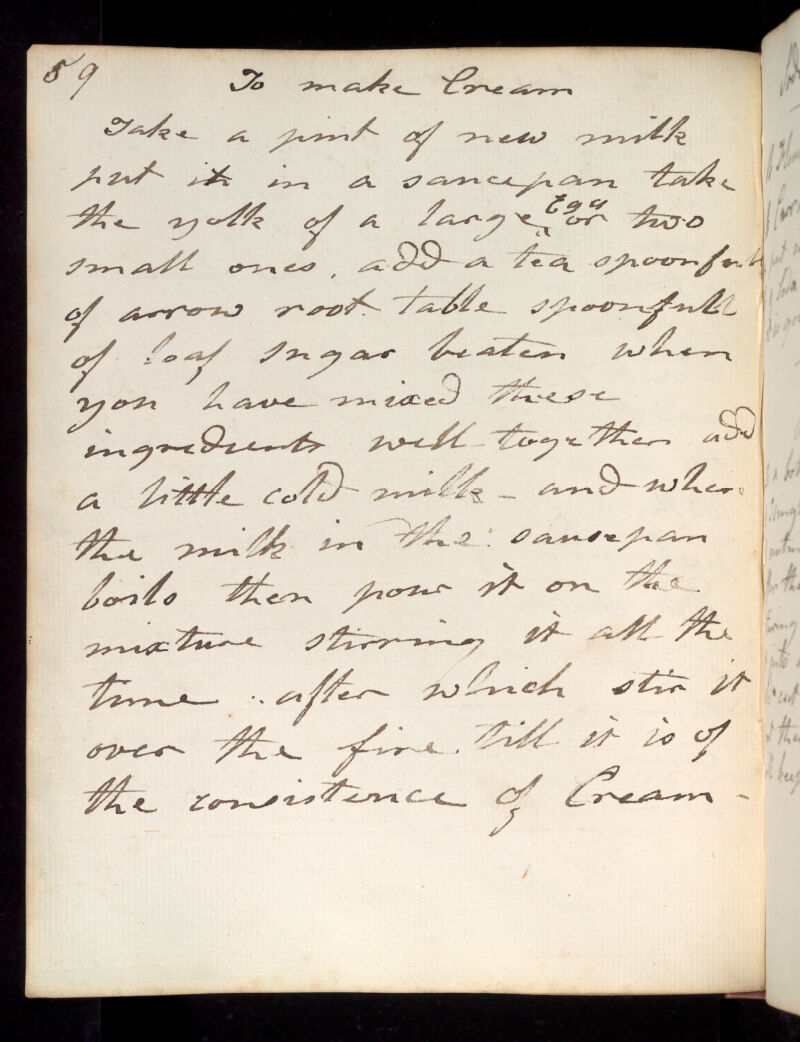 59
To make Cream
Take a pint of new milk
put it in a saucepan take
the yolk of a large Egg or two
small ones. add a tea spoonfull
of arrow root. table spoonfull
of loaf sugar beaten when
you have mixed these
ingredients well together add
a little cold milk - and when
the milk in the saucepan
boils then pour it on the
mixture stirring it all the
time .. after which stir it
over the fire till it is of
the consistence of Cream -